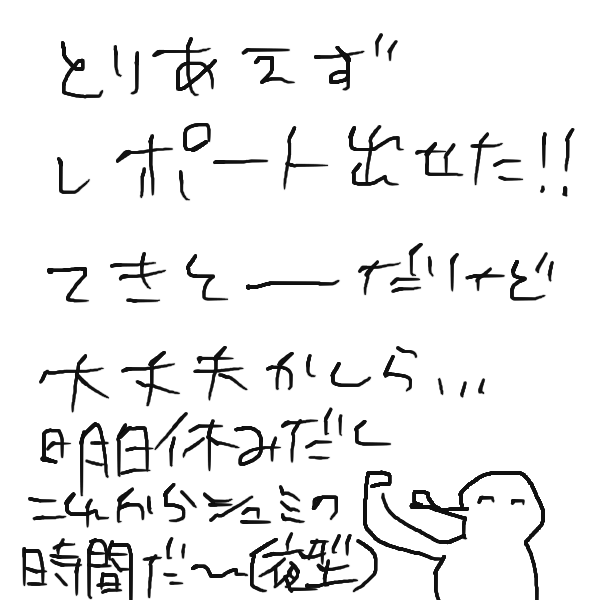 とりあえず
レポート出せた!!
てきとーだけど
大丈夫かしら...
明日休みだし
これからジュミの
時間だ〜